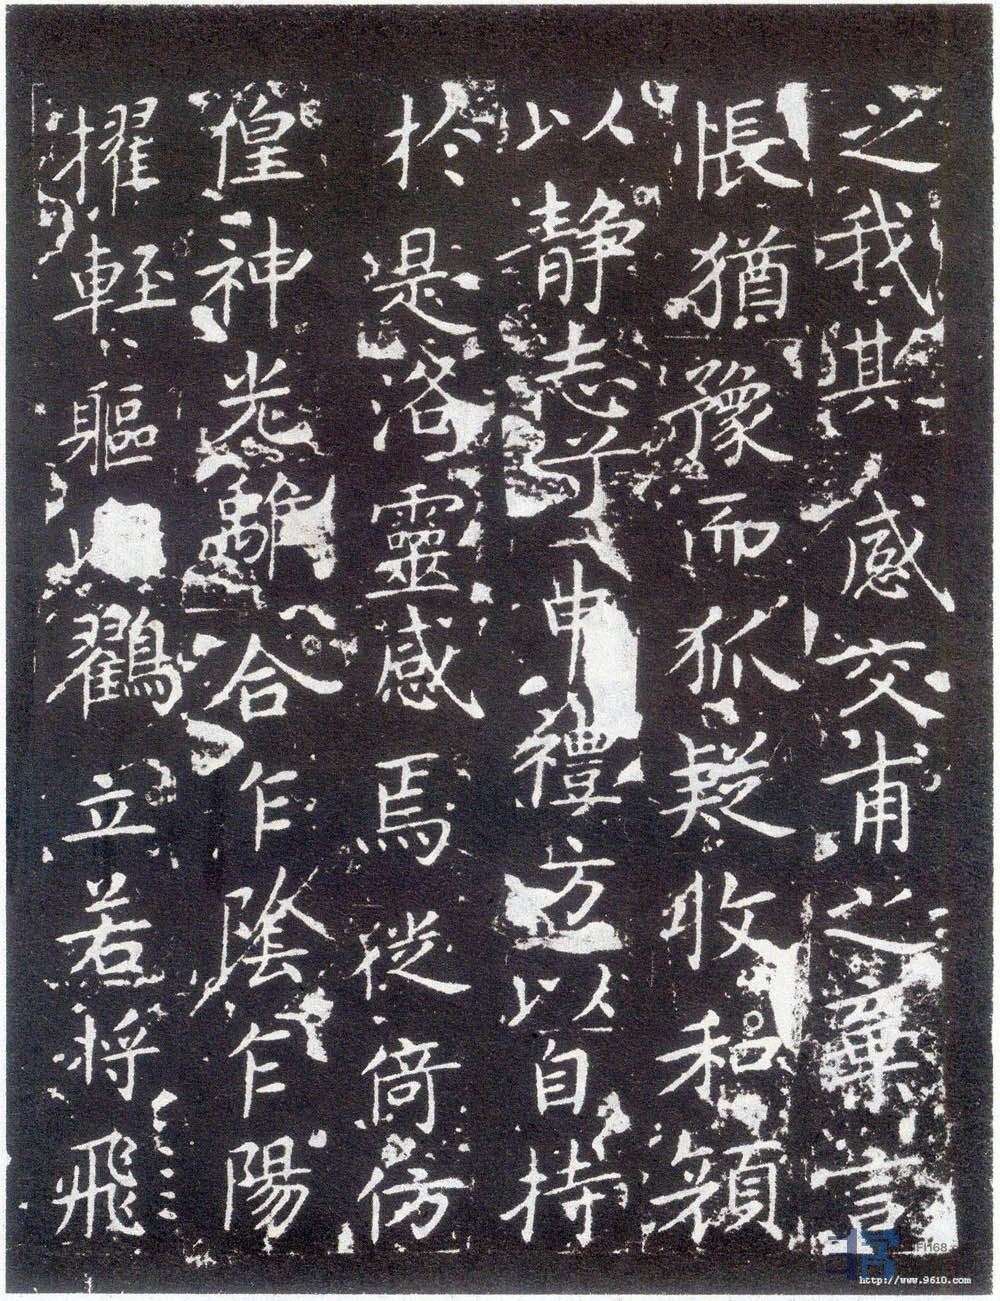 之我其感交甫之棄言
悵猶豫而狐疑收和顏
以静志兮申禮方以自持
於是洛靈感焉徙倚仿
偟神光離合乍陰乍陽
擢輕軀以鶴立若将飛
http://www.9610.com